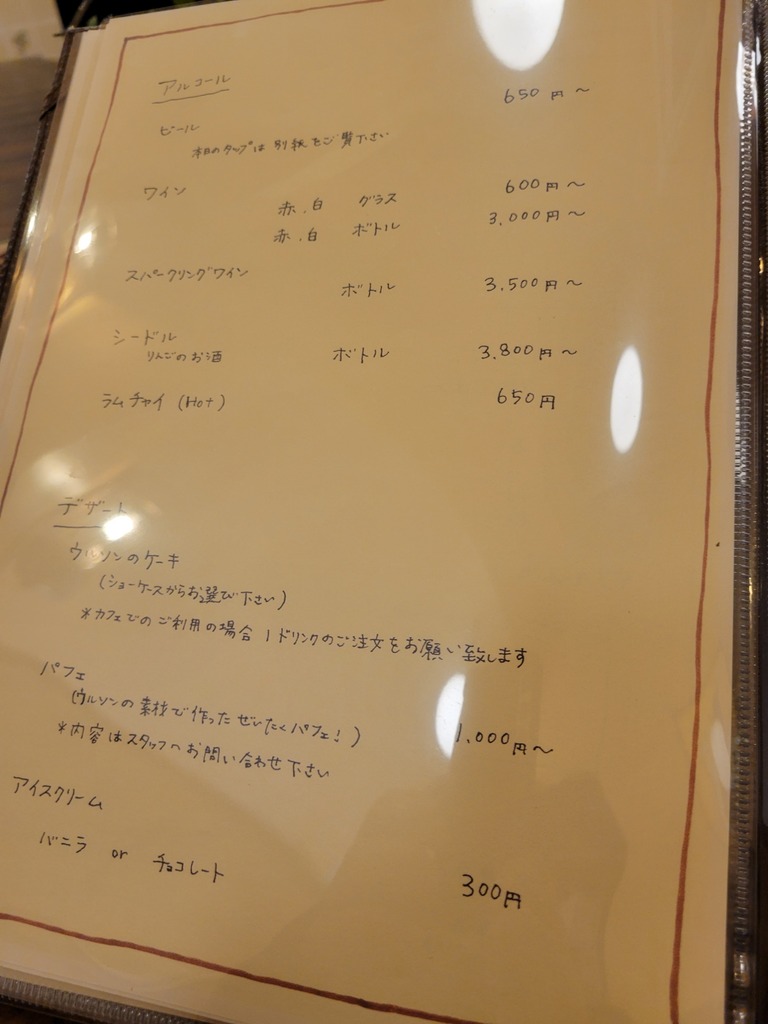 アルコール
ビール 650円～
本日のタップは別紙をご覧下さい
ワイン 赤.白 グラス 600円～
赤.白 ボトル 3,000円～
スパークリングワイン ボトル 3.500円～
シードル
りんごのお酒 ボトル 3.800円～
ラムチャイ (Hot) 650円
デザート
ウルソンのケーキ
(ショーケースからお選び下さい)
*カフェでのご利用の場合 1ドリンクのご注文をお願い致します
パフェ
(ウルソンの素材で作ったぜいたくパフェ!) 1,000円～
*内容はスタッフへお問い合わせ下さい
アイスクリーム
バニラ or チョコレート 300円